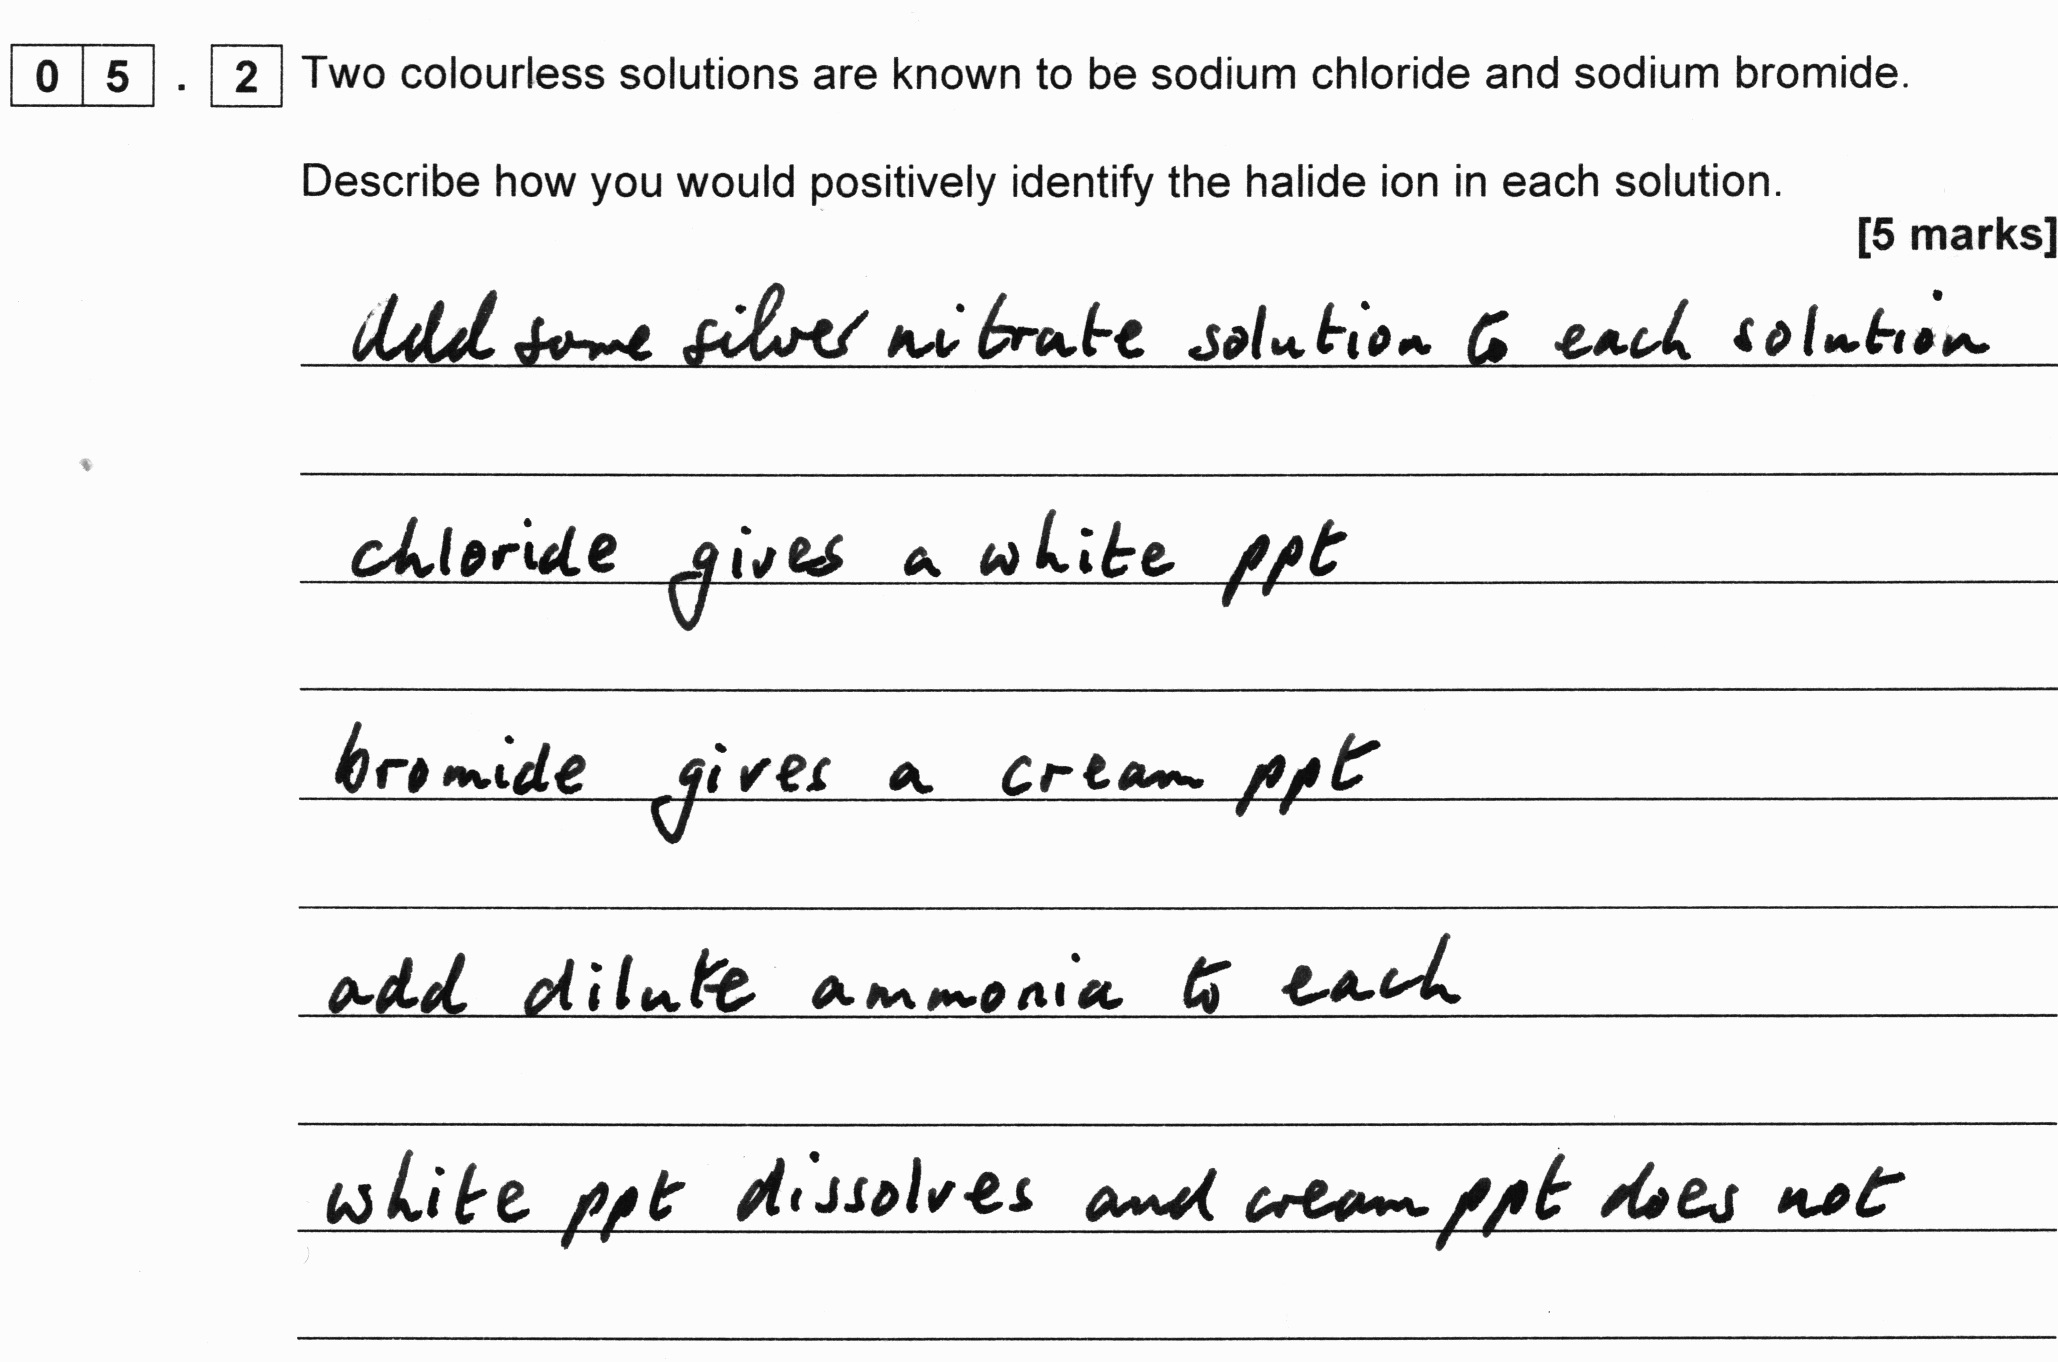 05.2 Two colourless solutions are known to be sodium chloride and sodium bromide.
Describe how you would positively identify the halide ion in each solution.
[5 marks]
Add some silver nitrate solution to each solution
chloride gives a white ppt
bromide gives a cream ppt
add dilute ammonia to each
white ppt dissolves and cream ppt does not